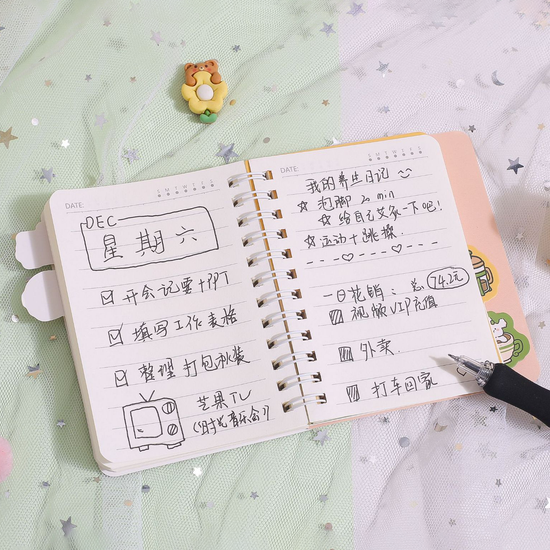 DATE:
DEC
星期六
开会记要+PPT
填写工作表格
整理打包秋装
芒果TV
(《时光音乐会》)
DATE:
我的养生日记
泡脚 20 min
给自己艾灸一下吧!
运动+跳操
一日花销: 总 74.2元
视频VIP充值
外卖.
打车回家